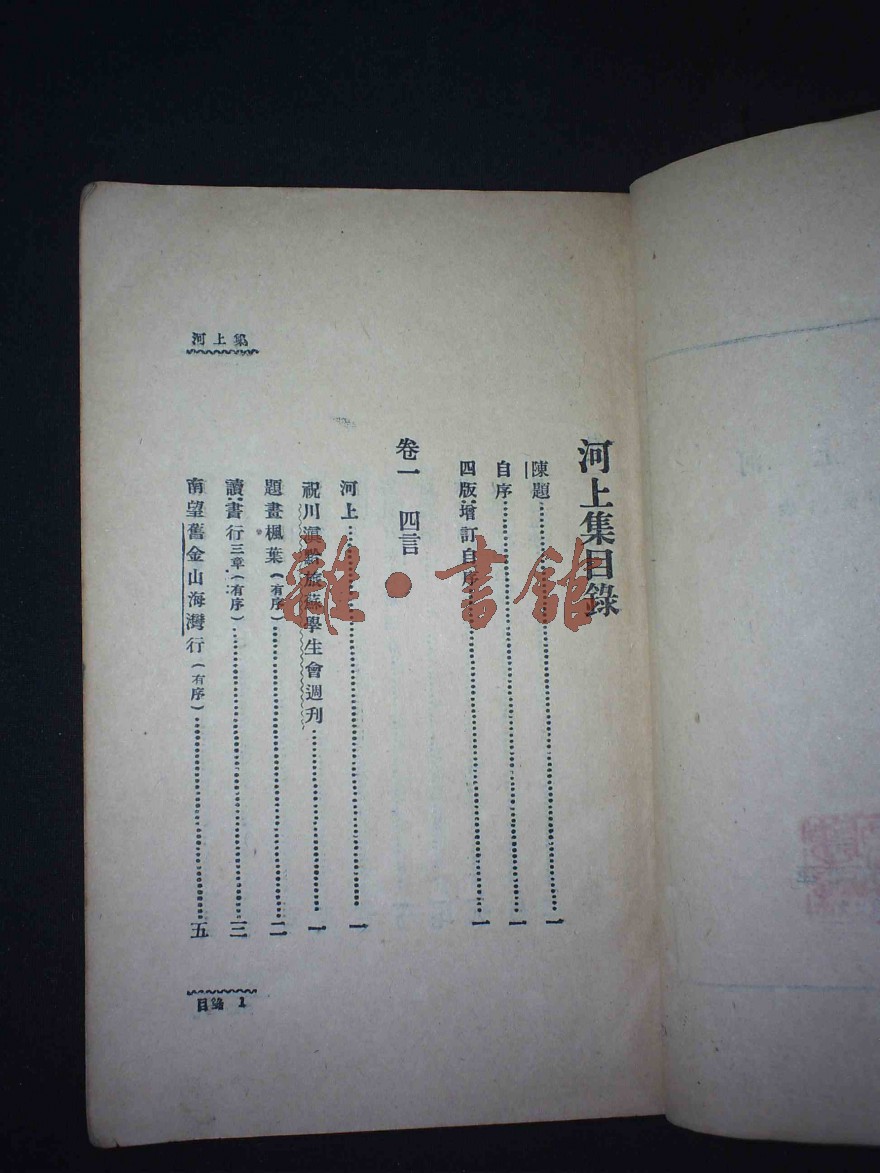 河上集
河上集目錄
陳題⋯⋯一
自序⋯⋯一
四版增訂自序⋯⋯一
卷一 四言
河上⋯⋯一
祝川滇黔旅蘇學生會週刊⋯⋯一
題畫楓葉（有序）⋯⋯二
讀書行三章（有序）⋯⋯三
南望舊金山海灣行（有序）⋯⋯五
目錄 1
雜·書館